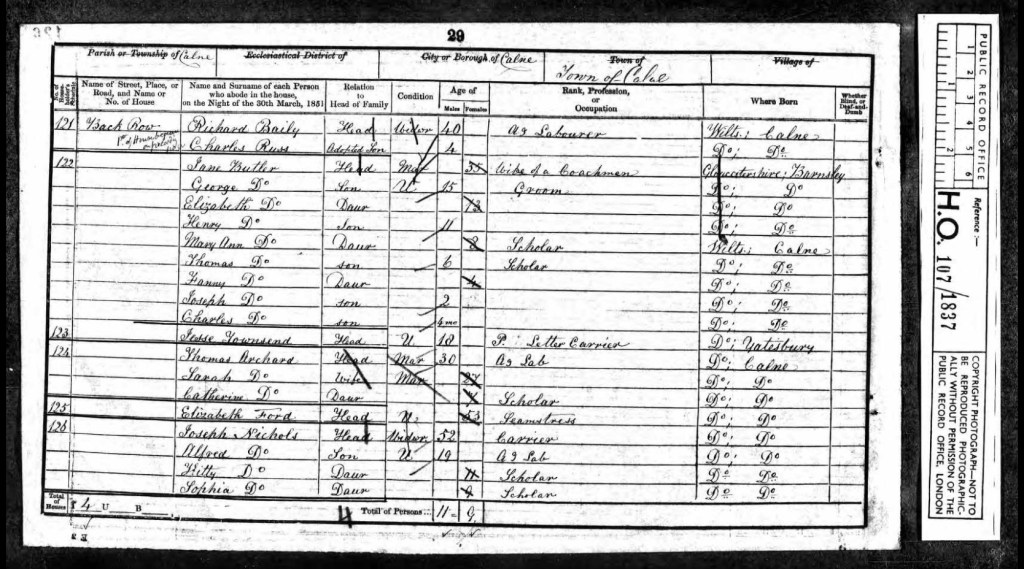 29
Parish or Township of Calne Ecclesiastical District of City or Borough of Calne Town of Town of Calne Village of
No. of Householder's Schedule Name of Street, Place, or Road, and Name or No. of House Name and Surname of each Person who abode in the house, on the Night of the 30th March, 1851 Relation to Head of Family Condition Age of Males Females Rank, Profession, or Occupation Where Born Whether Blind, or Deaf-and-Dumb
121 Back Row Richard Baily Head Widwr 40 Ag Labourer Wilts; Calne
Charles Russ Adopted Son 4 Do; Do
122 Jane Butler Head Mar 35 Wife of a Coachman Gloucestershire; Barnsley
George Do Son U 15 Groom Do; Do
Elizabeth Do Daur 13 Do; Do
Henry Do Son 11 Do; Do
Mary Ann Do Daur 8 Scholar Wilts; Calne
Thomas Do son 6 Scholar Do; Do
Fanny Do Daur 4 Do; Do
Joseph Do son 2 Do; Do
Charles Do son 4 mo Do; Do
123 Jesse Townsend Head U 18 P. Letter Carrier Do; Yatesbury
124 Thomas Archard Head Mar 30 Ag Lab Do; Calne
Sarah Do Wife Mar 27 Do; Do
Catherine Do Daur Scholar Do; Do
125 Elizabeth Ford Head U 53 Seamstress Do; Do
126 Joseph Nichols Head Widwr 52 Carrier Do; Do
Alfred Do Son U 19 Ag Lab Do; Do
Kitty Do Daur 11 Scholar Do Do
Sophia Do Daur 9 Scholar Do Do
Total of Houses I 4 U B 4 Total of Persons... 11 9
PUBLIC RECORD OFFICE
1 2 3 4 5 6
Reference :-
H.O. 107/1837
COPYRIGHT PHOTOGRAPH—NOT TO BE REPRODUCED PHOTOGRAPHICALLY WITHOUT PERMISSION OF THE PUBLIC RECORD OFFICE, LONDON